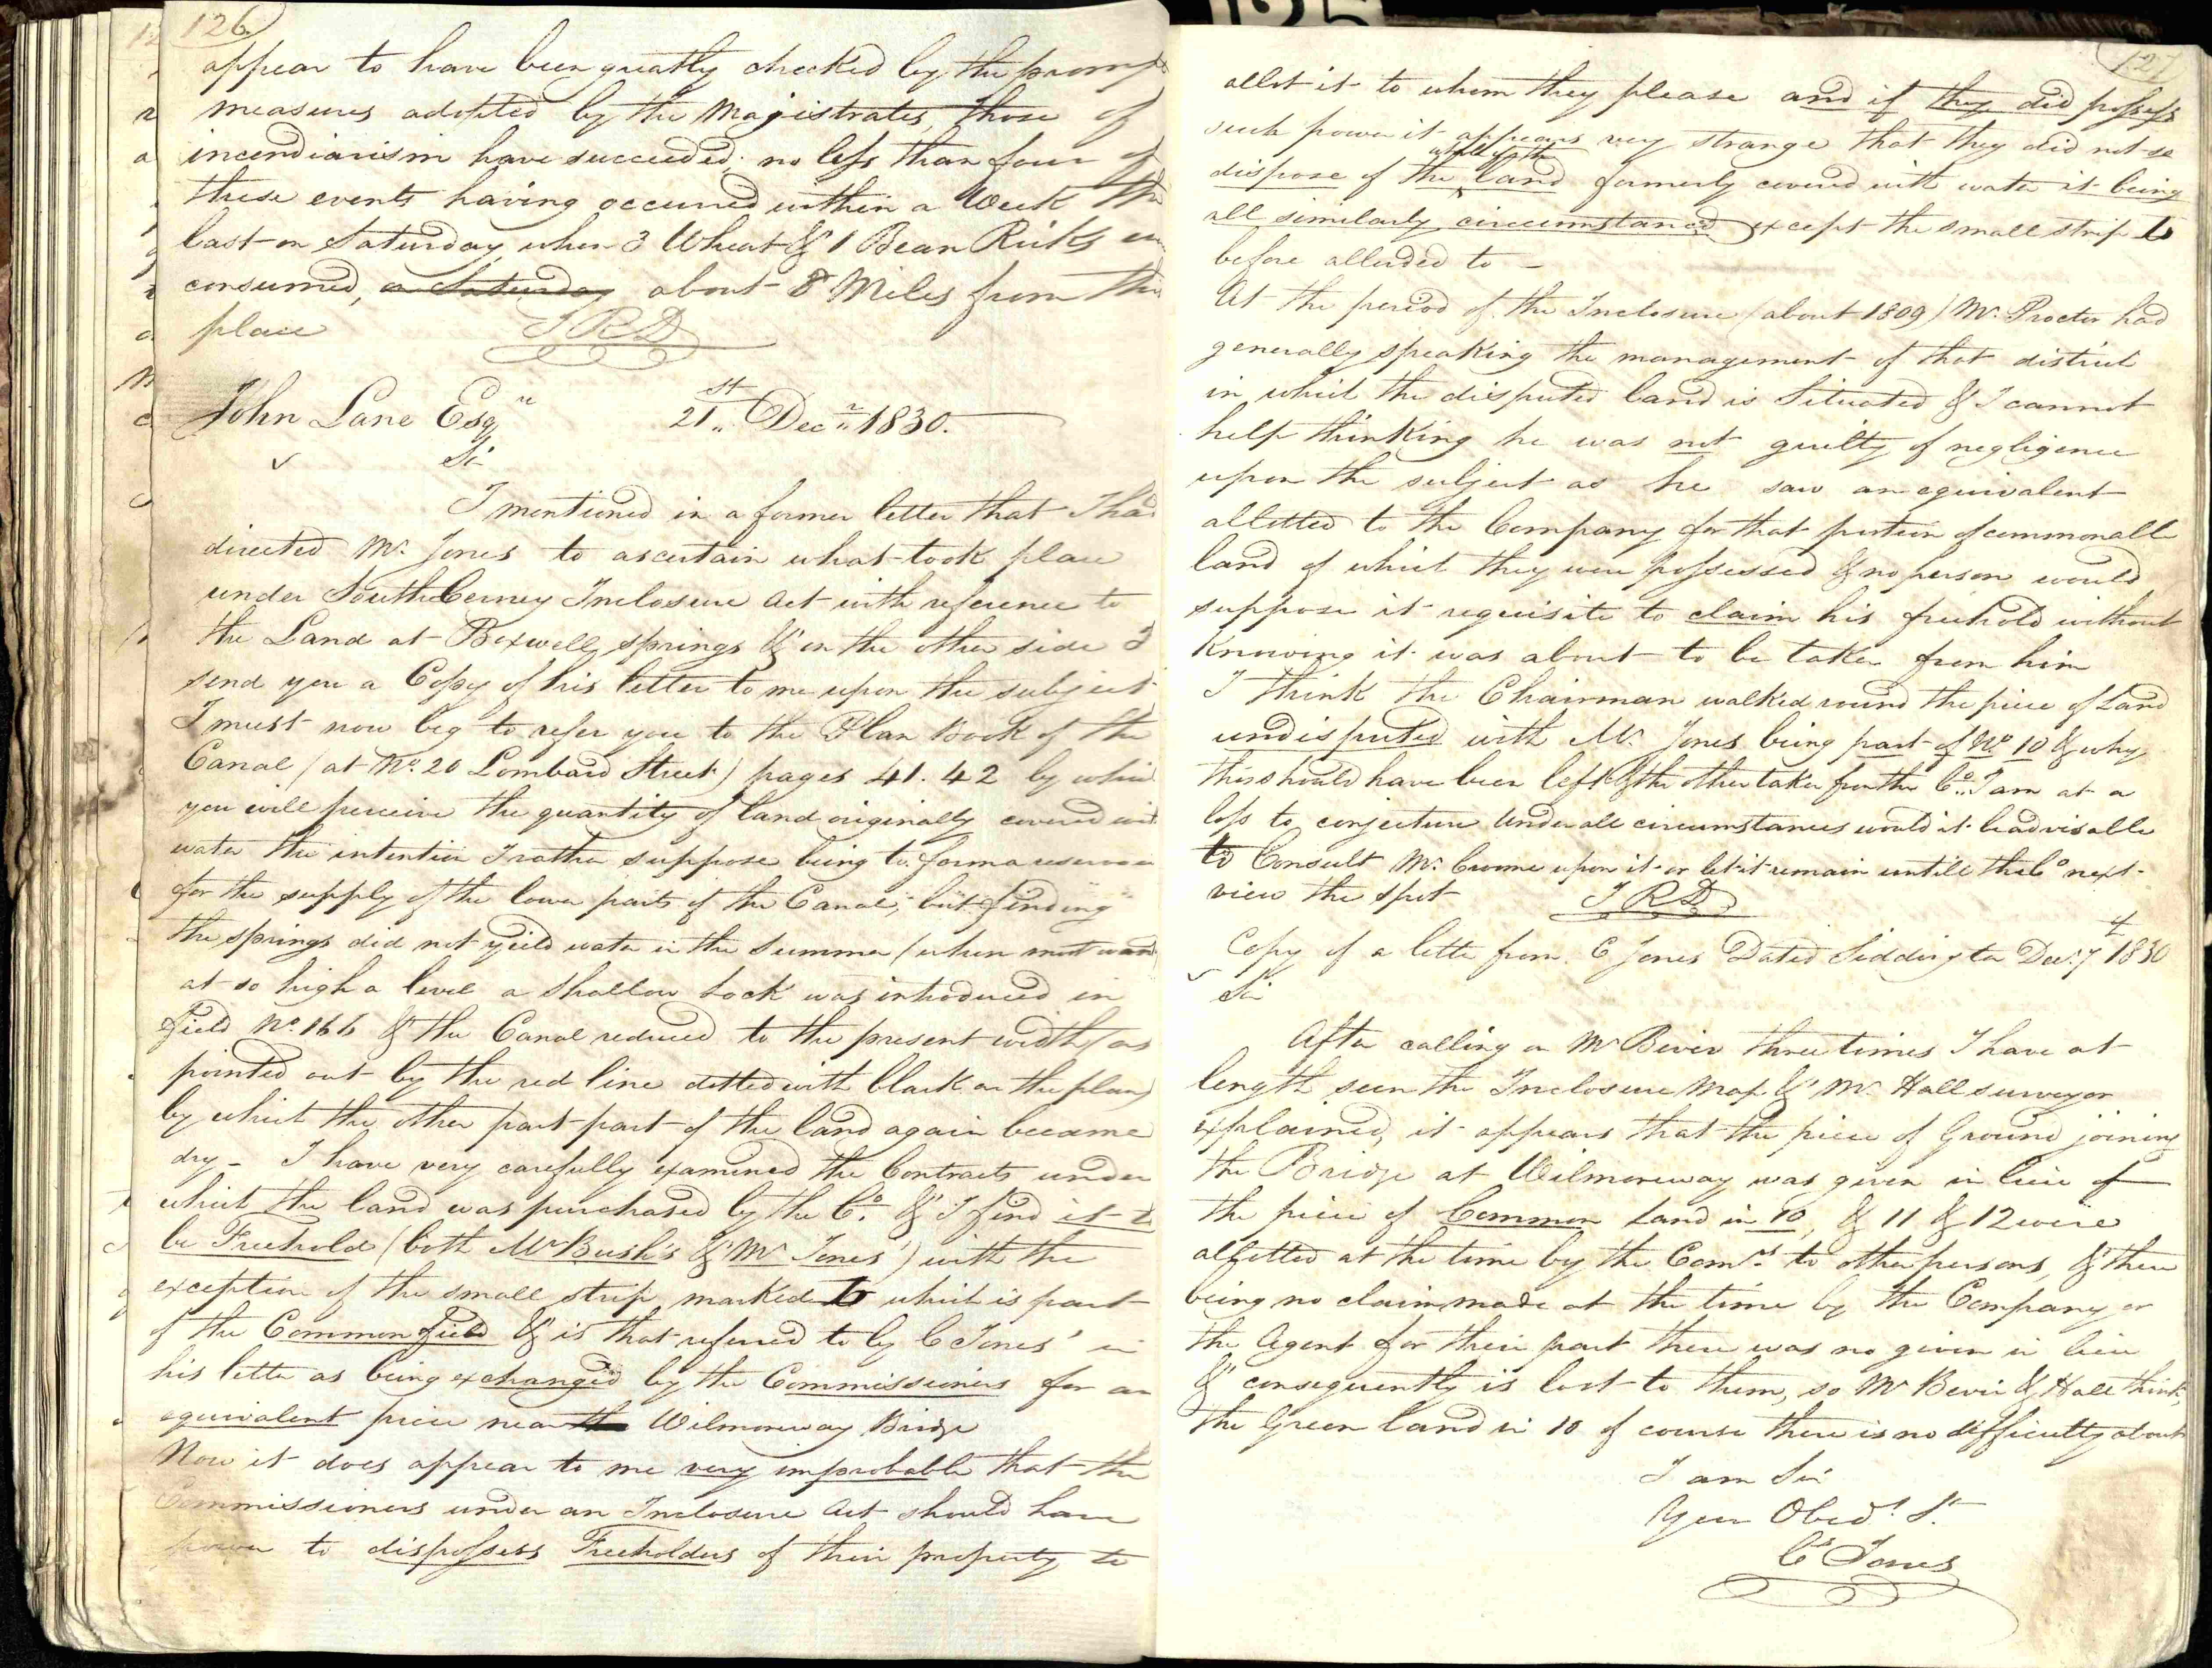 126
appear to have been greatly checked by the prompt
measures adopted by the Magistrates, those of
incendiarism have succeeded; no less than four of
these events having occurred within a Week the
last on Saturday when 3 Wheat & 1 Bean Ricks
consumed, on Saturday about 8 Miles from this
place JRD
John Lane Esqre 21st Decr 1830.
Sir
I mentioned in a former letter that I had
directed Mr. Jones to ascertain what took place
under South Cerney Inclosure Act with reference to
the Land at Boxwell springs & on the other side I
send you a Copy of his letter to me upon the subject
I must now beg to refer you to the Plan Book of the
Canal (at No. 20 Lombard Street) pages 41. 42 by which
you will perceive the quantity of land originally covered with
water the intention I rather suppose being to form a reservoir
for the supply of the lower parts of the Canal, but finding
the springs did not yield water in the summer (when most wanted
at so high a level a shallow Lock was introduced in
field No. 166 & the Canal reduced to the present width (as
pointed out by the red line dotted with black on the plan)
by which the other part part of the land again became
dry - I have very carefully examined the Contracts under
which the land was purchased by the Co. & I find it to
be Freehold (both Mr Bush's & Mr Jones') with the
exception of the small strip marked b which is part
of the Common field & is that referred to by C Jones' in
his letter as being exchanged by the Commissioners for an
equivalent piece near the Wilmoreway Bridge
Now it does appear to me very improbable that the
Commissioners under an Inclosure Act should have
power to dispossess Freeholders of their property to
127
allot it to whom they please and if they did possess
such power it appears very strange that they did not so
whole of the
dispose of the land formerly covered with water it being
all similarly circumstanced except the small strip b
before alluded to -
At the period of the Inclosure (about 1809) Mr. Procter had
generally speaking the management of that district
in which the disputed land is Situated & I cannot
help thinking he was not guilty of negligence
upon the subject as he saw an equivalent
allotted to the Company for that portion of commonable
land of which they were possessed & no person would
suppose it requisite to claim his freehold without
Knowing it was about to be taken from him
I think the Chairman walked round the piece of Land
undisputed with Mr. Jones being part of No 10 & why
this should have been left & the other taken from the Co. I am at a
loss to conjecture Under all circumstances would it be advisable
to Consult Mr. Croome upon it or let it remain untill the Co next
view the spot JRD
Copy of a letter from C Jones Dated Siddington Decr. 7th 1830
Sir
After calling on Mr Bevir three times I have at
length seen the Inclosure Map & Mr. Hall surveyor
explained, it appears that the piece of Ground joining
the Bridge at Wilmoreway was given in lieu of
the piece of Common Land in 10, & 11 & 12 were
allotted at the time by the Comrs. to other persons, & there
being no claim made at the time by the Company or
the Agent for their part there was no given in lieu
& consequently is lost to them, so Mr Bevir & Hall think,
the Green land in 10 of course there is no difficulty about
I am Sir
Your Obedt. St.
Cs Jones